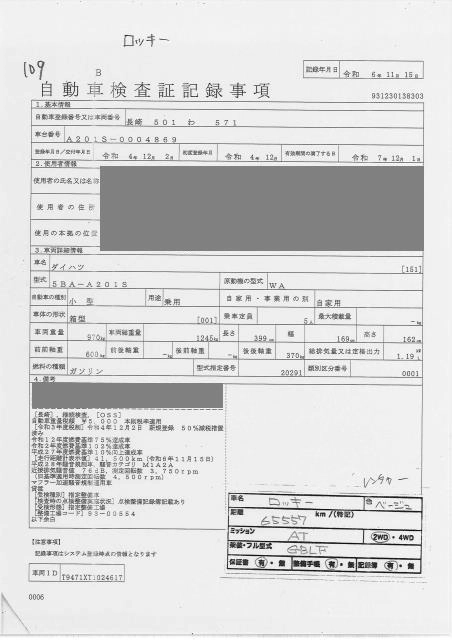 ロッキー
109
B
記録年月日 令和 6年11月15日
自動車検査証記録事項
931230138303
1.基本情報
自動車登録番号又は車両番号 長崎 501 わ 571
車台番号 A201S-0004869
登録年月日/交付年月日 令和 4年12月 2日 初度登録年月 令和 4年12月 有効期間の満了する日 令和 7年12月 1日
2.使用者情報
使用者の氏名又は名称
使用者の住所
使用の本拠の位置
3.車両詳細情報
車名 ダイハツ [151]
型式 5BA-A201S 原動機の型式 WA
自動車の種別 小型 用途 乗用 自家用・事業用の別 自家用
車体の形状 箱型 [001] 乗車定員 5人 最大積載量 -kg
車両重量 970kg 車両総重量 1245kg 長さ 399cm 幅 169cm 高さ 162cm
前前軸重 600kg 前後軸重 -kg 後前軸重 -kg 後後軸重 370kg 総排気量又は定格出力 1.19
燃料の種類 ガソリン 型式指定番号 20291 類別区分番号 0001
4.備考
[長崎],継続検査,[OSS]
自動車重量税額 ¥5,000 本則税率適用
[令和3年度税制] 令和4年12月2日 新規登録 50%減税措置
済み
令和12年度燃費基準75%達成車
令和2年度燃費基準102%達成車
平成27年度燃費基準10%向上達成車
[走行距離計表示値] 41,500km(令和6年11月15日)
平成28年騒音規制車,騒音カテゴリ M1A2A
近接排気騒音値 76dB,測定回転数 3,750rpm
(旧基準適用時測定回転数 4,500rpm)
マフラー加速騒音規制適用車
[受検種別] 指定整備車
[検査時の点検整備実施状況] 点検整備記録簿記載あり
[受検形態] 指定整備工場
[整備工場コード] 93-00554
以下余白
レンタカー
車名 ロッキー 色 ベージュ
距離 65557 km/(特記)
ミッション AT 2WD・4WD
架装・フル型式 GBLF
保証書 有・無 整備手帳 有・無 記録簿 有・無
【注意事項】
記録事項はシステム登録時点の情報となります
車両ID T9471XT1024617
0006